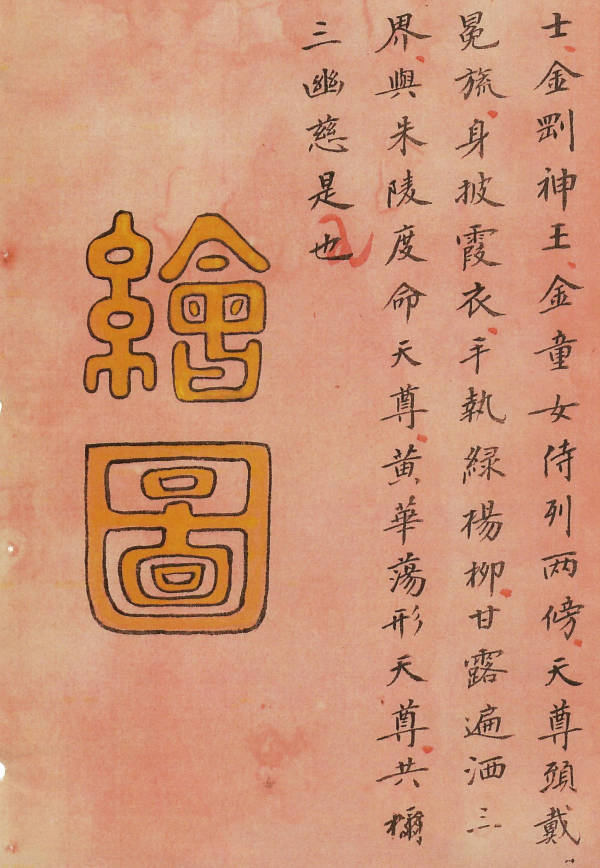 士金剛神王金童女侍列两傍天尊頭戴
冕旒身披霞衣手執綠楊柳甘露遍洒三
界與朱陵度命天尊黃華蕩形天尊共稱
三幽慈是也
繪圖